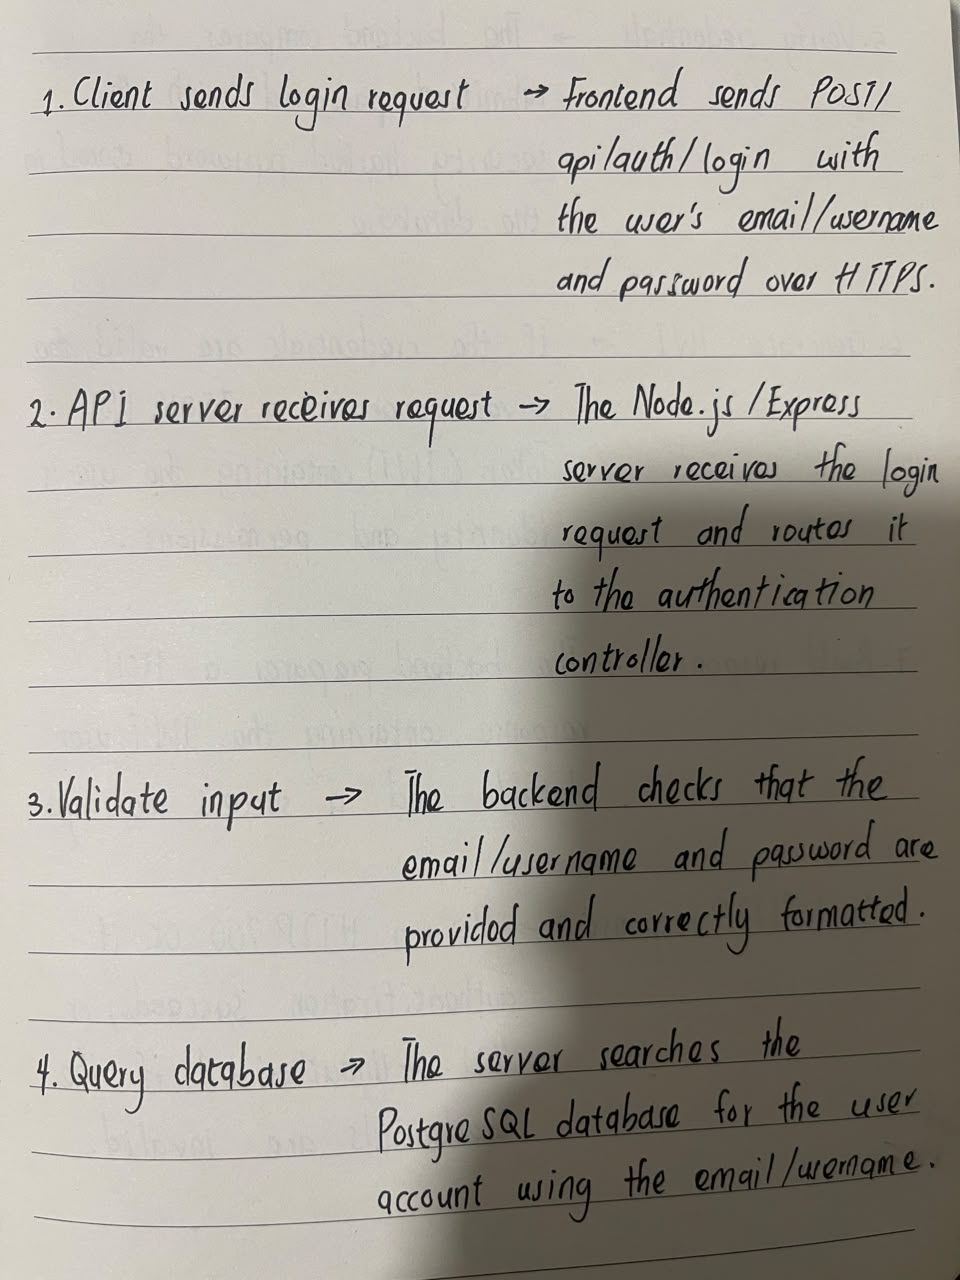 1. Client sends login request → Frontend sends POST/
api/auth/login with
the user's email/username
and password over HTTPS.
2. API server receives request → The Node.js/Express
server receives the login
request and routes it
to the authentication
controller.
3. Validate input → The backend checks that the
email/username and password are
provided and correctly formatted.
4. Query database → The server searches the
PostgreSQL database for the user
account using the email/username.